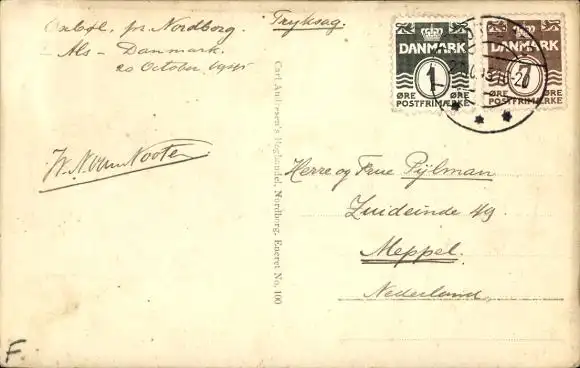 pr. Nordborg.
Als - Danmark.
20 October
Tryksag.
W. N. van Nooten
Herre og Frue Pijlman
Zuideinde 49.
Meppel.
Nederland.
Carl Andersen's Boghandel, Nordborg. Eneret No. 100
DANMARK
1
ØRE ØRE
POSTFRIMÆRKE
DANMARK
ØRE ØRE
POSTFRIMÆRKE
F.